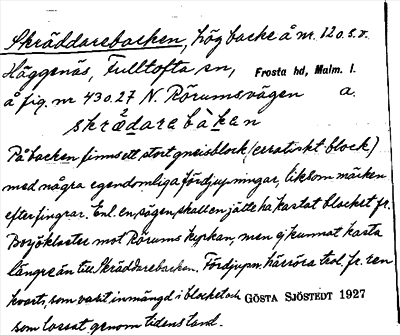 Skräddarebacken, hög backe å nr. 12 o. s. v.
Häggenäs, Fulltofta sn, Frosta hd, Malm. l.
å fig. nr 43 o. 27 N. Rörumsvägen a.
skrædarebaken
På backen finns ett stort gneisblock (erratiskt block)
med några egendomliga fördjupningar, liksom märken
efter fingrar. Enl. en sägen skall en jätte ha kastat blocket fr.
Bosjökloster mot Rörums kyrkan, men ej kunnat kasta
längre än till Skräddarebacken. Fördjupn. härröra trol. fr. ren
kvarts, som varit inmängd i blocket och GÖSTA SJÖSTEDT 1927
som lossat genom tidens tand.